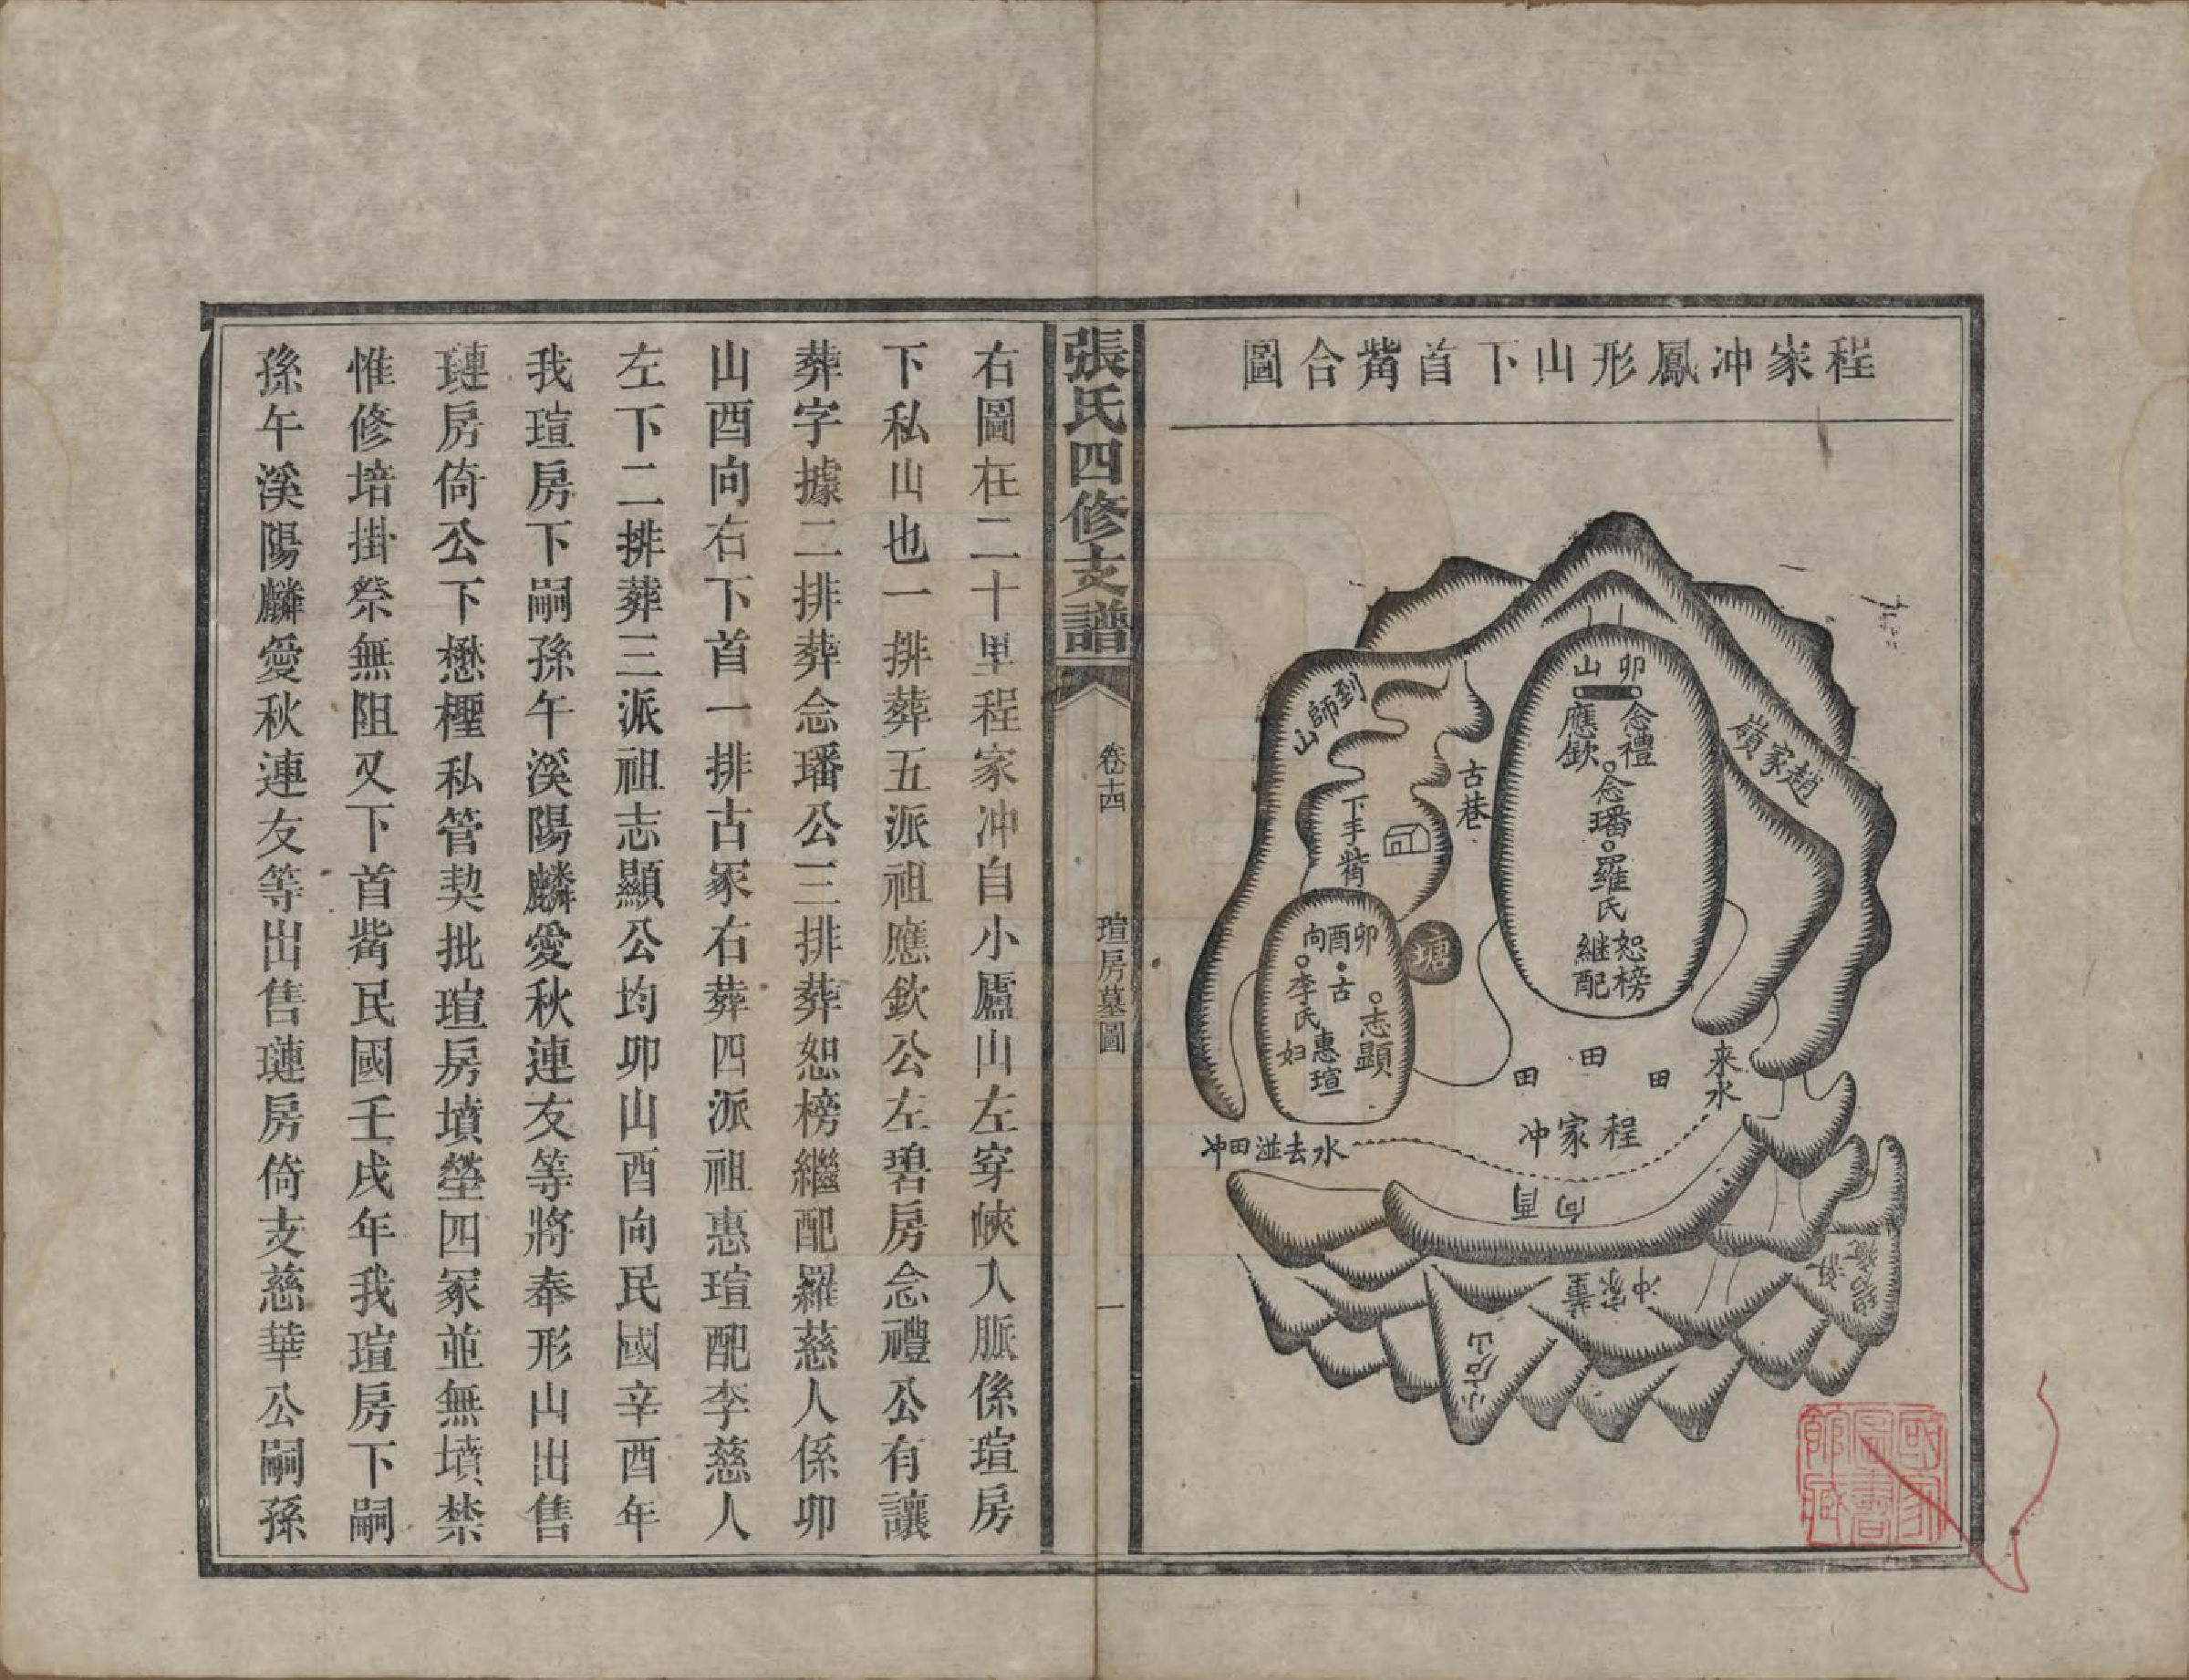 程家冲鳳形山下首觜合圖
卯山
念禮
應欽
念璠
羅氏
恕榜
継配
趙家嶺
到師山
古巷
下手觜
塘
卯酉向
志顯
古
惠瑄
李氏
妇
田
田
田
来水
程家冲
水去湴田冲
酉向
董家冲
小岩山
張氏四修支譜
卷十四
瑄房墓圖
一
右圖在二十里程家冲自小廬山左穿峽入脈係瑄房
下私山也一排葬五派祖應欽公左碧房念禮公有讓
葬字據二排葬念璠公三排葬恕榜繼配羅慈人係卯
山酉向右下首一排古冢右葬四派祖惠瑄配李慈人
左下二排葬三派祖志顯公均卯山酉向民國辛酉年
我瑄房下嗣孫午溪陽麟愛秋連友等將奉形山出售
璉房倚公下懋檉私管契批瑄房墳塋四冢並無墳禁
惟修培掛祭無阻又下首觜民國壬戌年我瑄房下嗣
孫午溪陽麟愛秋連友等出售璉房倚支慈華公嗣孫
國家圖書館藏